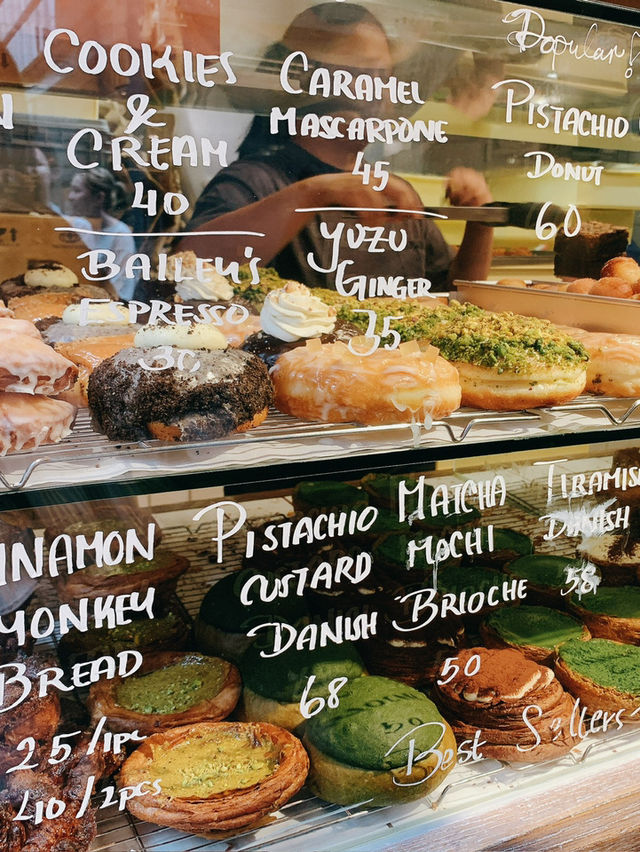 COOKIES
&
CREAM
40
BAILEY'S
ESPRESSO
30
CARAMEL
MASCARPONE
45
YUZU
GINGER
35
Popular!
PISTACHIO
DONUT
60
INNAMON
MONKEY
BREAD
25/1pc
40/2pcs
PISTACHIO
CUSTARD
DANISH
68
MATCHA
MOCHI
BRIOCHE
50
TIRAMIS
DANISH
58
Best Sellers